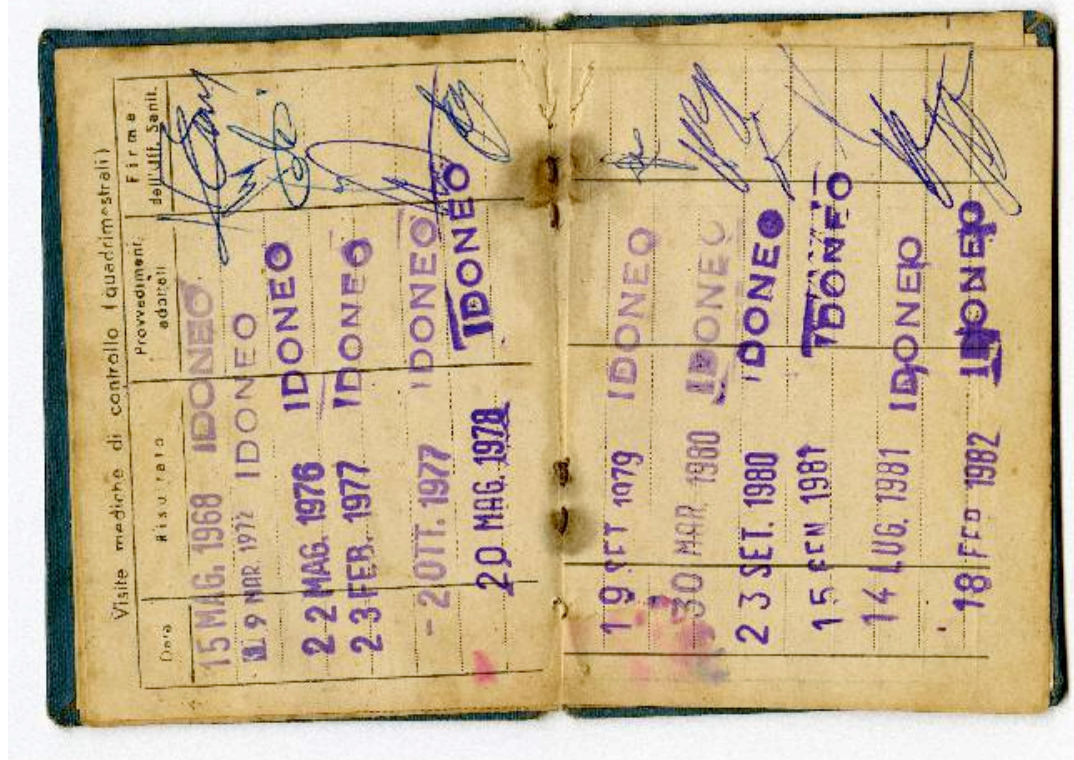 Visite mediche di controllo (quadrimestrali)
Data Risultato Provvedimenti adottati Firma dell'Uff. Sanit.
15 MAG. 1968 IDONEO
9 MAR 1972 IDONEO
22 MAG. 1976 IDONEO
23 FEB. 1977 IDONEO
- 2 OTT. 1977 IDONEO
20 MAG. 1978 IDONEO
19 SET 1979 IDONEO
30 MAR 1980 IDONEO
23 SET. 1980 IDONEO
15 GEN 1981 IDONEO
14 LUG. 1981 IDONEO
18 FEB 1982 IDONEO